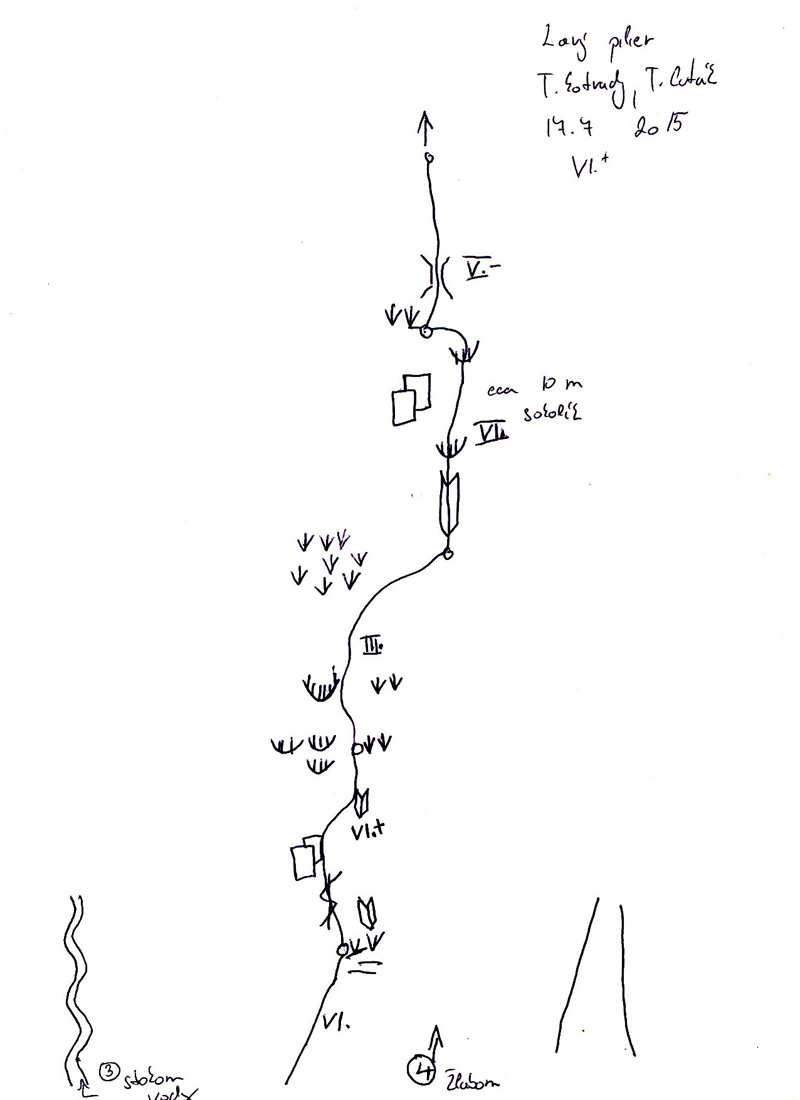 Ľavý pilier
T. 
17.7 2015
VI.+
V.-
cca 10 m
sokolík
VI.
III.
VI.+
VI.
3 stokom
vody
4 Žľabom